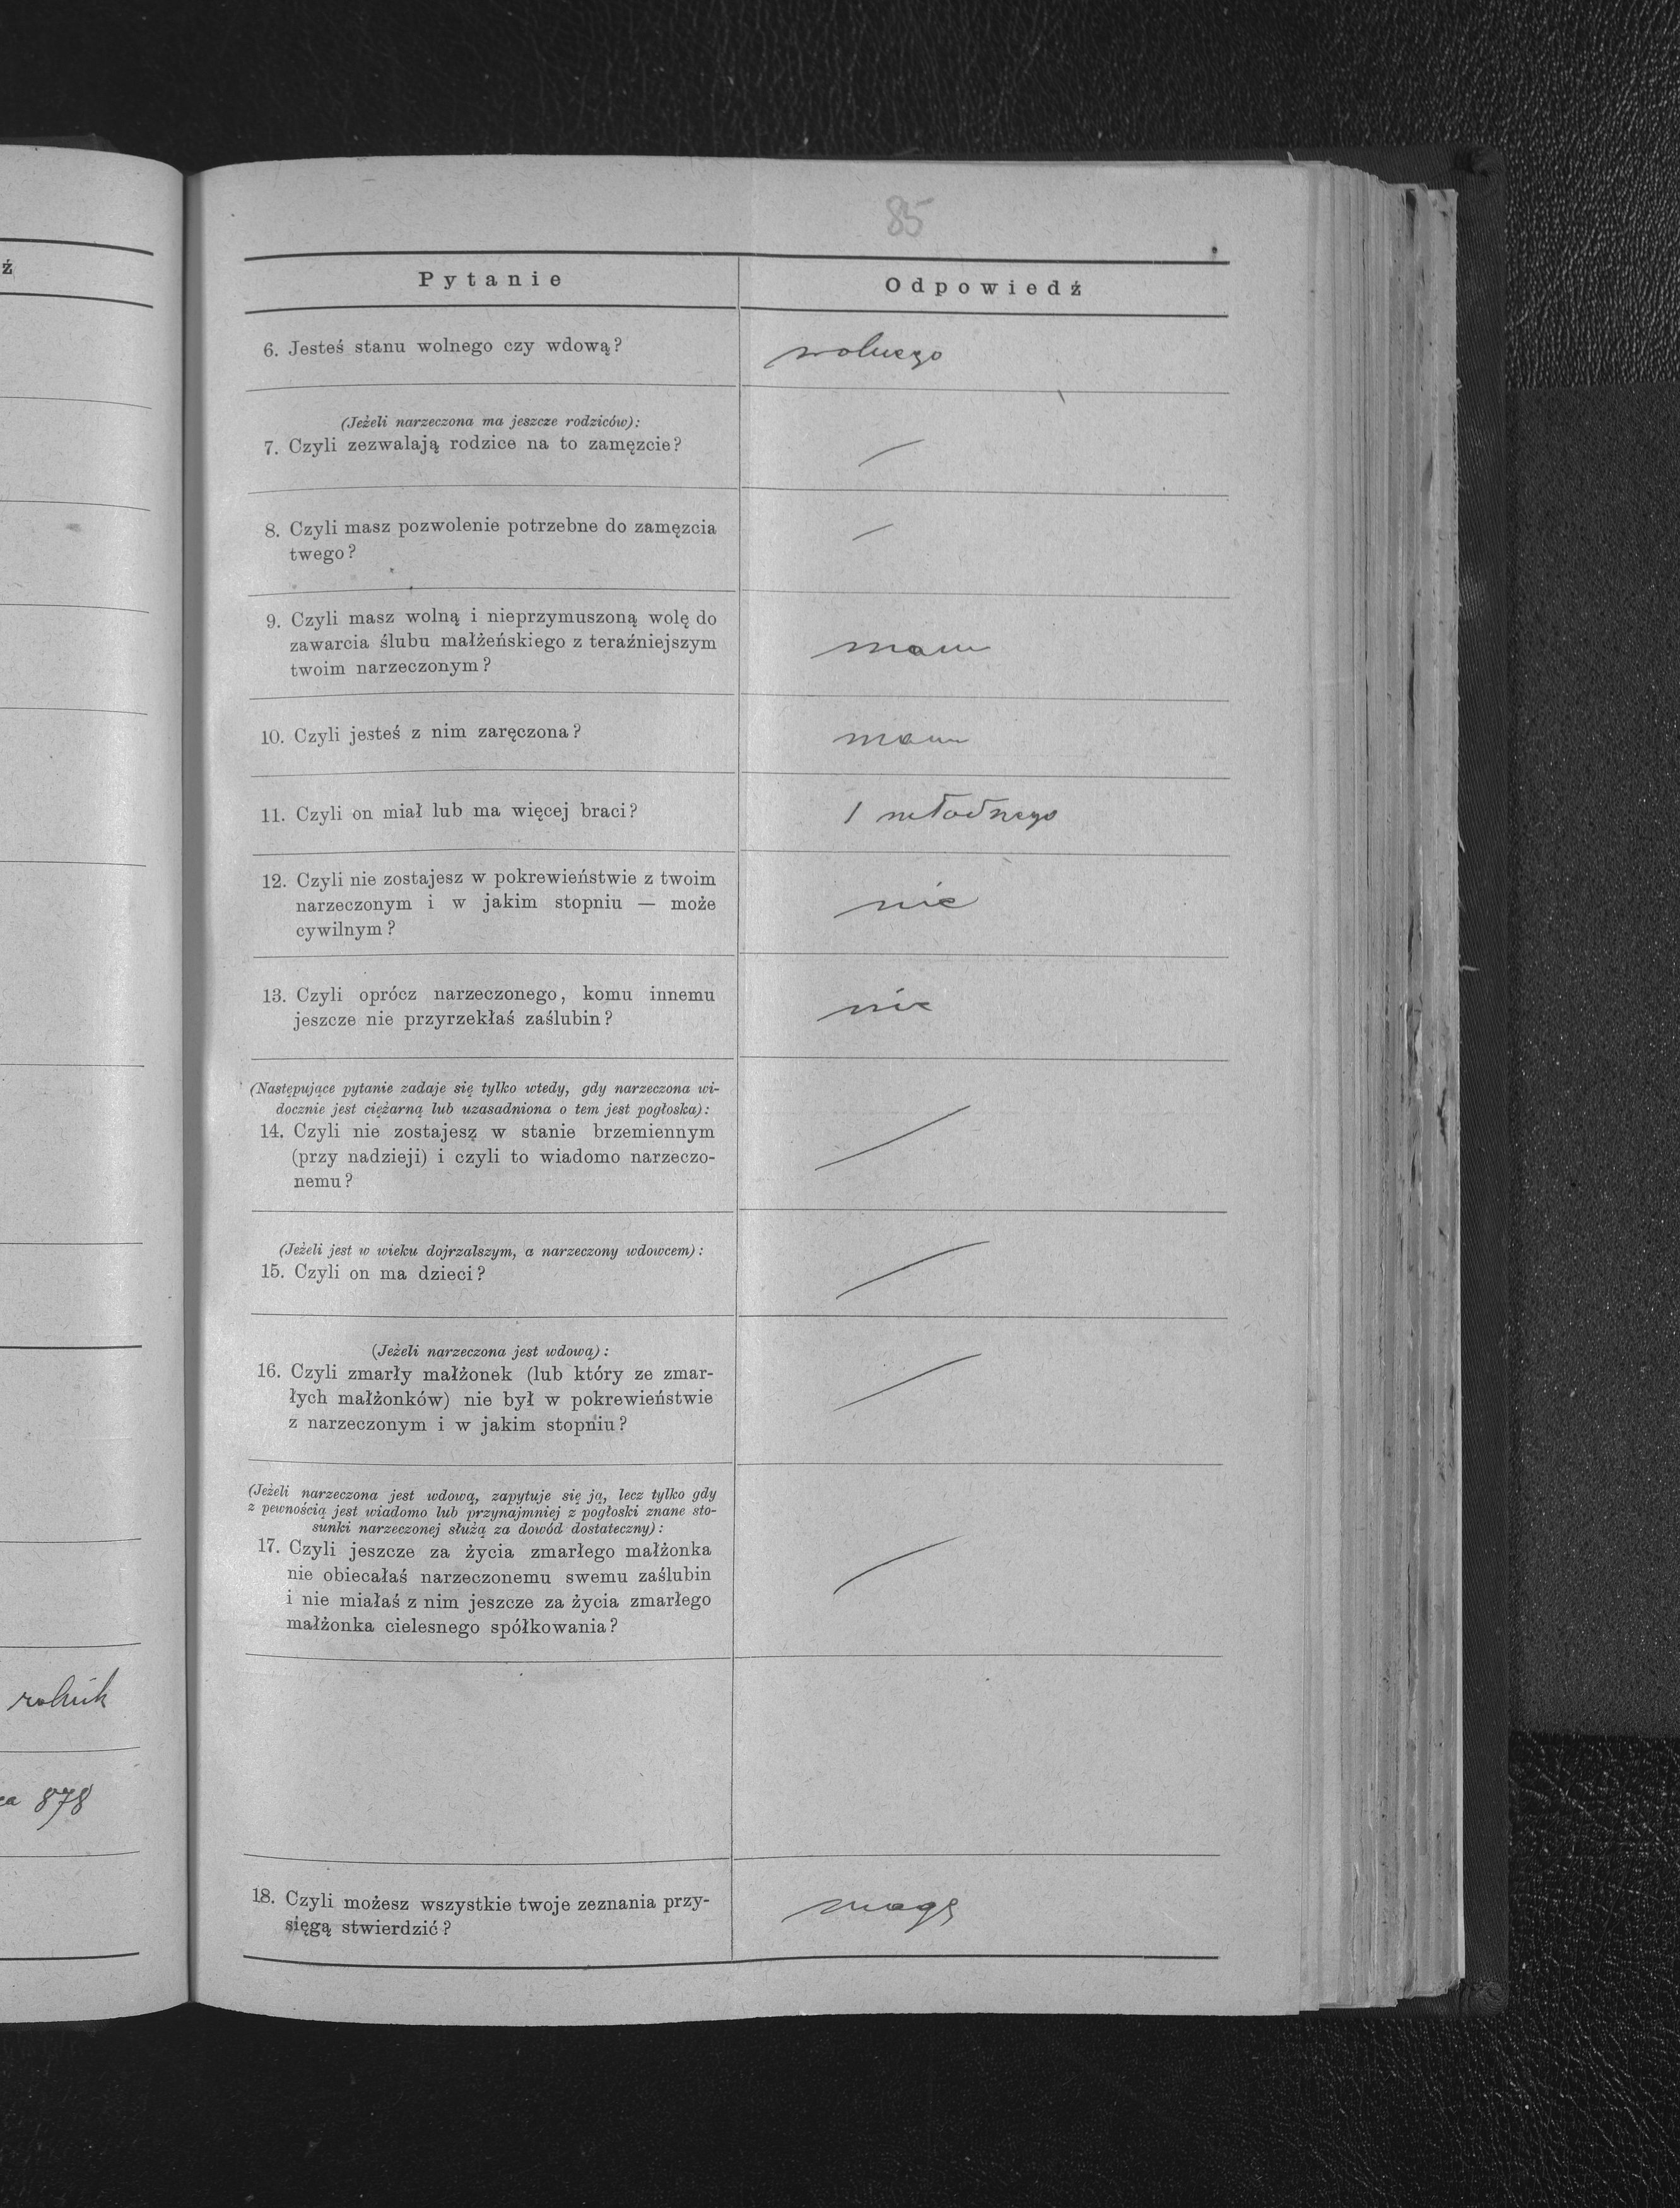 ź
rolnik
878
85
Pytanie
Odpowiedź
6. Jesteś stanu wolnego czy wdową?
wolnego
(Jeżeli narzeczona ma jeszcze rodziców):
7. Czyli zezwalają rodzice na to zamęzcie?
8. Czyli masz pozwolenie potrzebne do zamęzcia
twego?
9. Czyli masz wolną i nieprzymuszoną wolę do
zawarcia ślubu małżeńskiego z teraźniejszym
twoim narzeczonym?
mam
10. Czyli jesteś z nim zaręczona?
mam
11. Czyli on miał lub ma więcej braci?
1 młodszego
12. Czyli nie zostajesz w pokrewieństwie z twoim
narzeczonym i w jakim stopniu — może
cywilnym?
nie
13. Czyli oprócz narzeczonego, komu innemu
jeszcze nie przyrzekłaś zaślubin?
nie
(Następujące pytanie zadaje się tylko wtedy, gdy narzeczona wi-
docznie jest ciężarną lub uzasadniona o tem jest pogłoska):
14. Czyli nie zostajesz w stanie brzemiennym
(przy nadzieji) i czyli to wiadomo narzeczo-
nemu?
(Jeżeli jest w wieku dojrzalszym, a narzeczony wdowcem):
15. Czyli on ma dzieci?
(Jeżeli narzeczona jest wdową):
16. Czyli zmarły małżonek (lub który ze zmar-
łych małżonków) nie był w pokrewieństwie
z narzeczonym i w jakim stopniu?
(Jeżeli narzeczona jest wdową, zapytuje się ją, lecz tylko gdy
z pewnością jest wiadomo lub przynajmniej z pogłoski znane sto-
sunki narzeczonej służą za dowód dostateczny):
17. Czyli jeszcze za życia zmarłego małżonka
nie obiecałaś narzeczonemu swemu zaślubin
i nie miałaś z nim jeszcze za życia zmarłego
małżonka cielesnego spółkowania?
18. Czyli możesz wszystkie twoje zeznania przy-
sięgą stwierdzić?
mogę